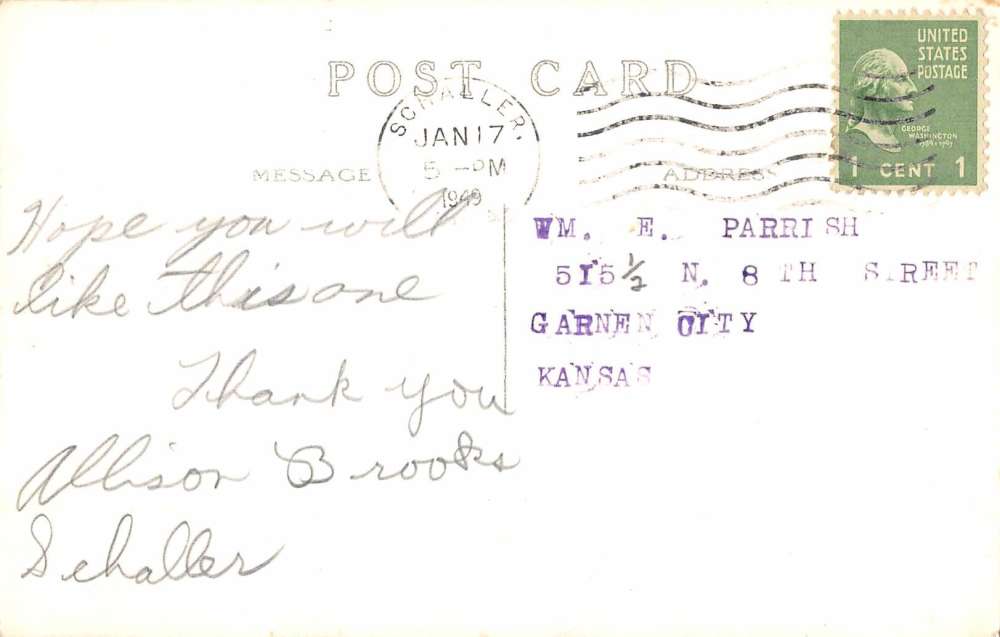 POST CARD
SCHALLER.
JAN 17
5 -PM
1949
UNITED
STATES
POSTAGE
GEORGE
WASHINGTON
1789-1797
1 CENT 1
MESSAGE
ADDRESS
Hope you will
like this one
Thank you
Allison Brooks
Schaller
WM. E. PARRISH
515 ½ N. 8 TH STREET
GARNEN CITY
KANSAS